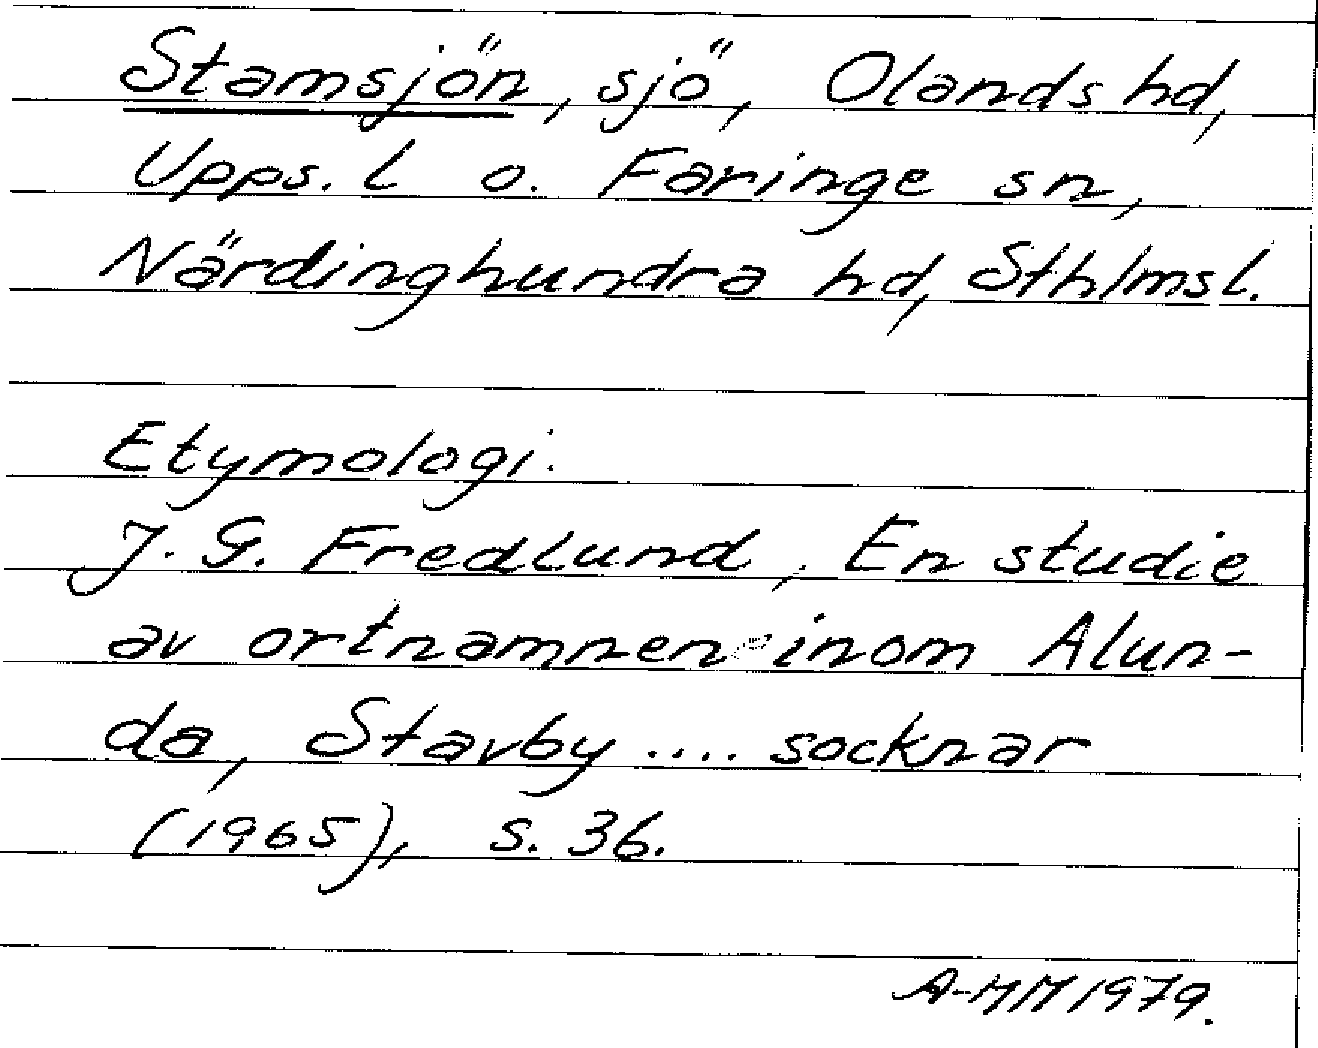 Stamsjön, sjö, Olands hd,
Upps. l o. Faringe sn,
Närdinghundra hd, Sthlmsl.
Etymologi.
J. G. Fredlund, En studie
av ortnamnen inom Alun-
da, Stavby .... socknar
(1965), s. 36.
A-MM 1979.